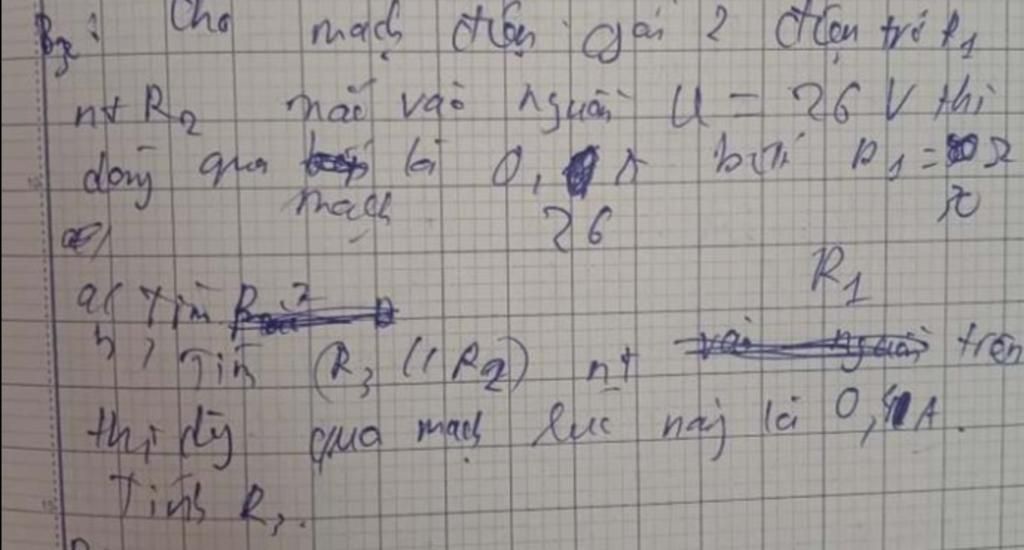 B2: Cho mạch điện gồi 2 điện trở R1
nt R2 mắc vào nguồn U = 26 V thì
dòng qua là 0, A biết R1 = Ω
mạch 26 50
a)
R1
a( Tìm
b) Tìm (R3 // R2) nt trên
thì dg qua mạch lúc này là 0, A.
Tính R3.